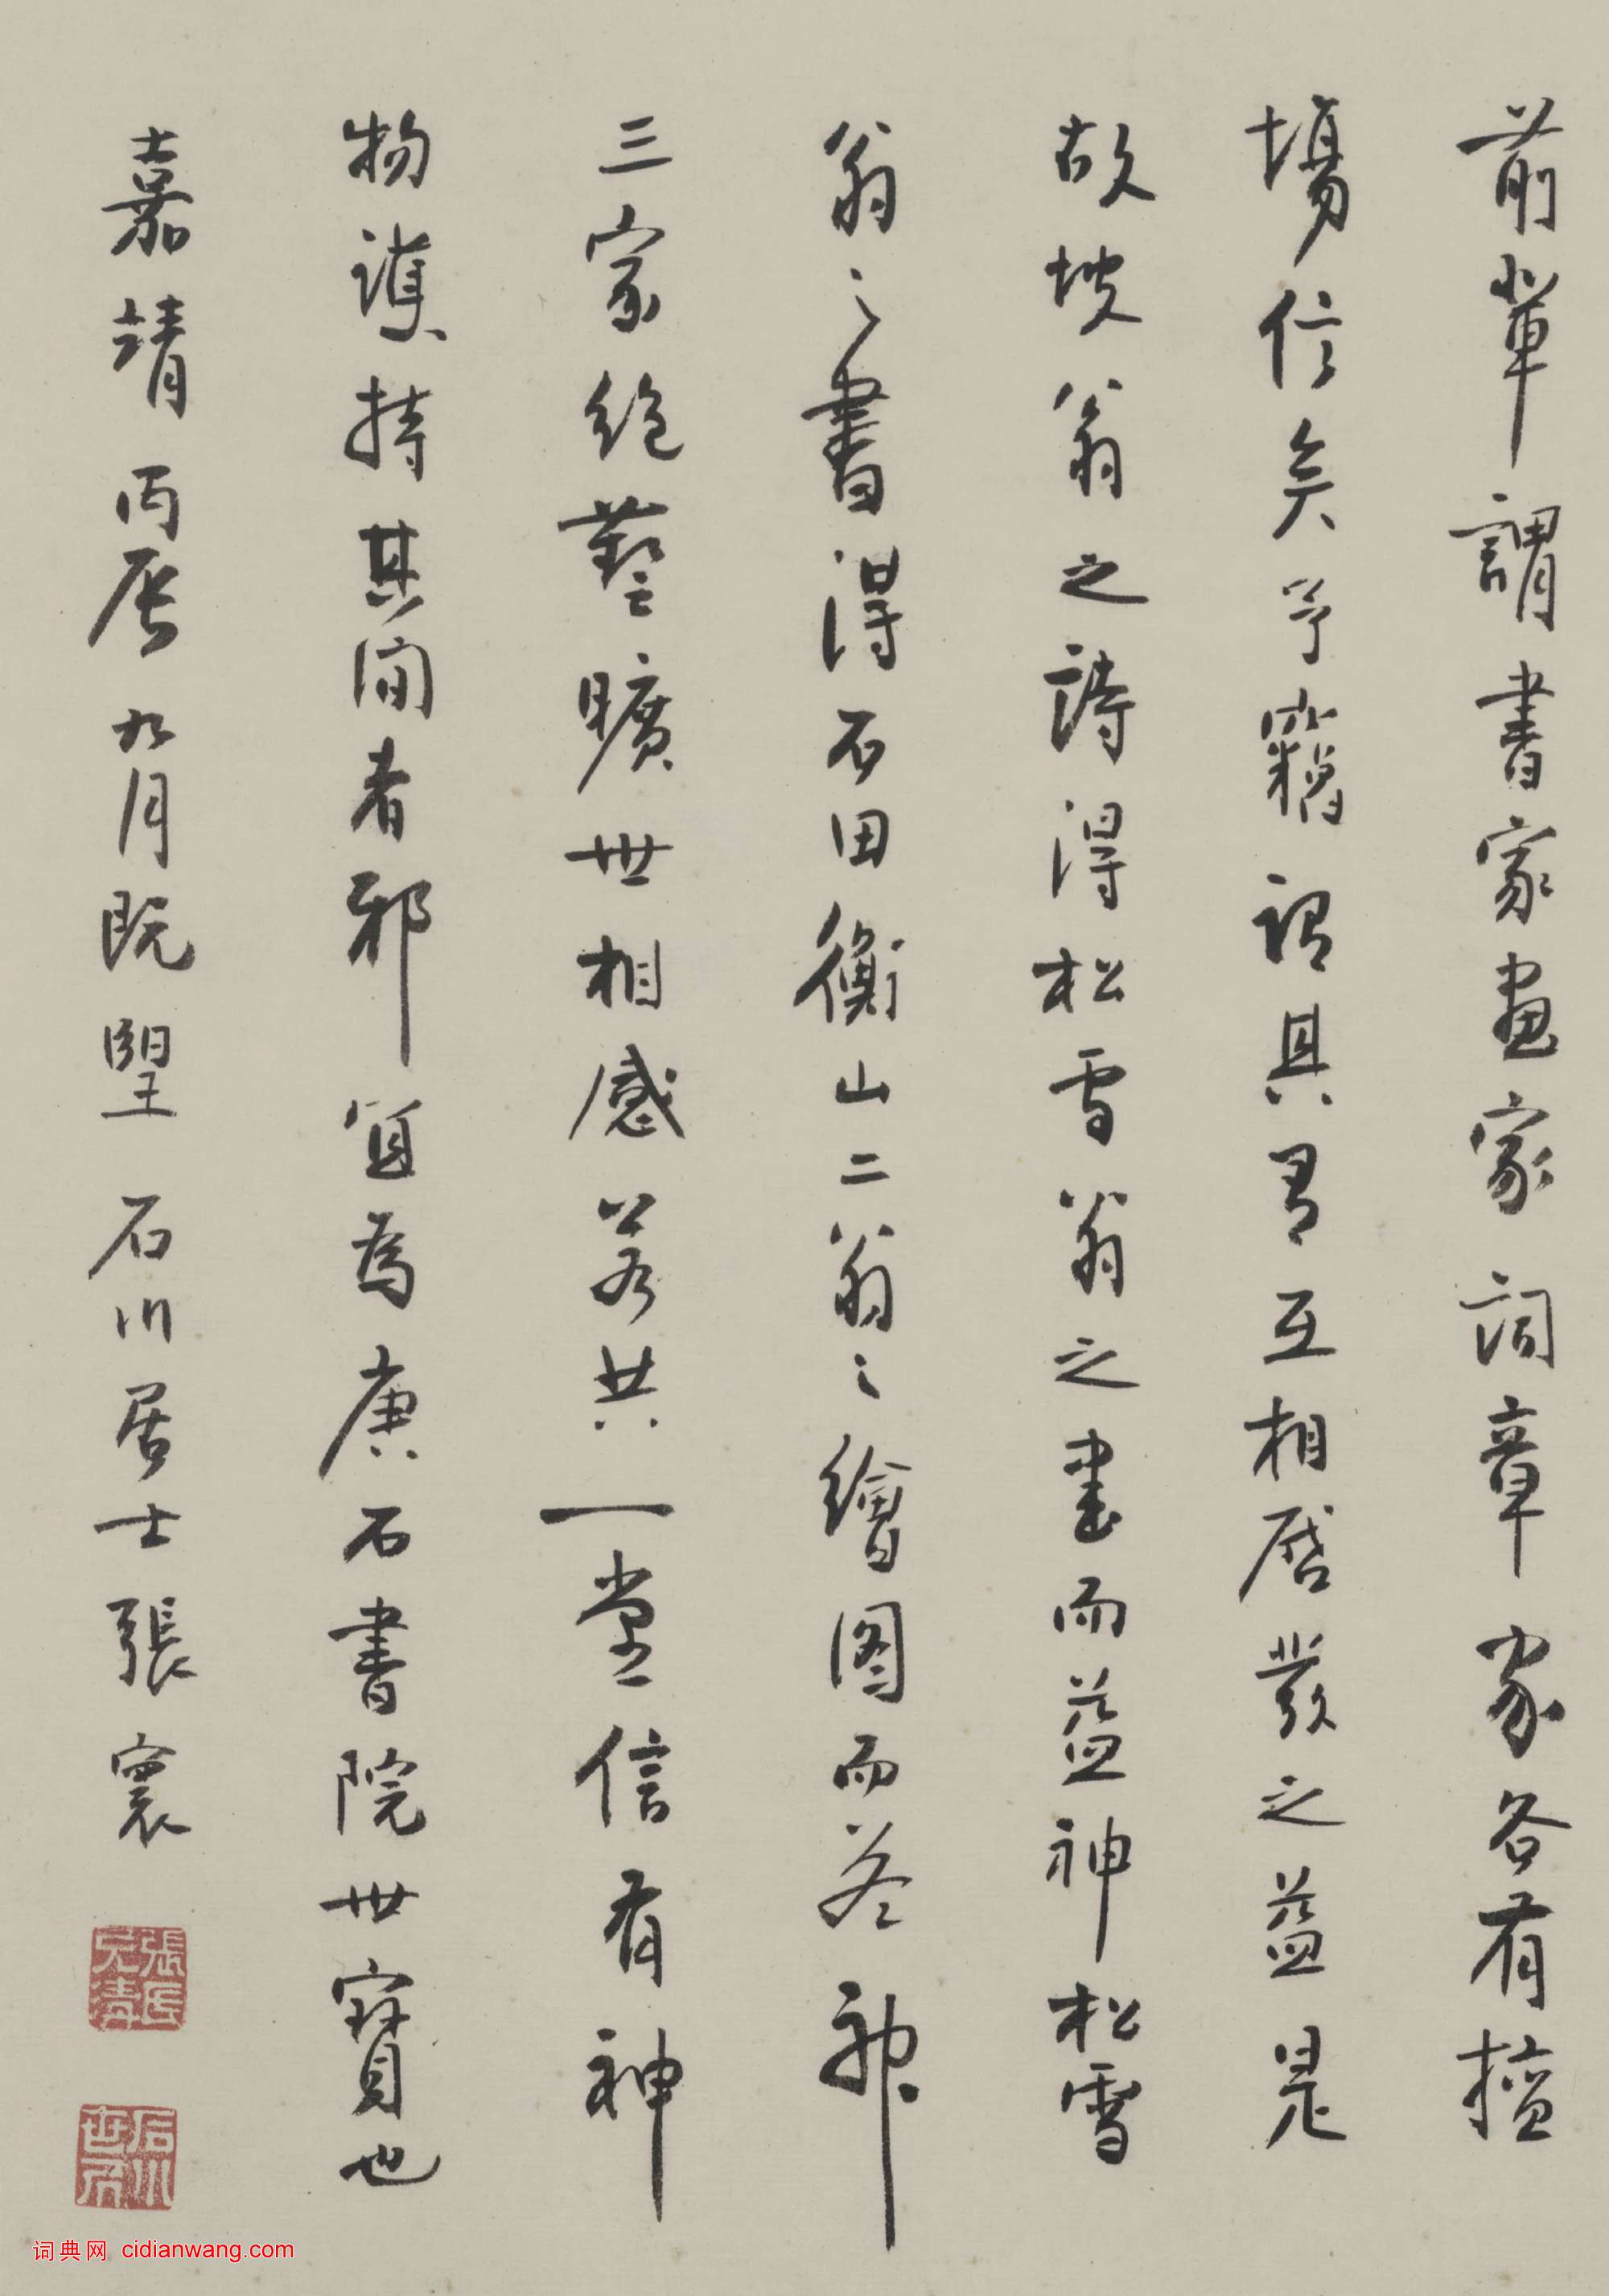 前輩謂書家畫家詞章家各有擅
場信矣予竊謂具有互相啓發之益是
故坡翁之詩得松雪翁之書而益神松雪
翁之書得石田衡山二翁之繪圖而益神
三家絕藝曠世相感若共一堂信有神
物護持其間者邪宜為唐石書院世寶也
嘉靖丙辰九月既望石川居士張寰
張氏
允清
石川
世家
词典网 cidianwang.com